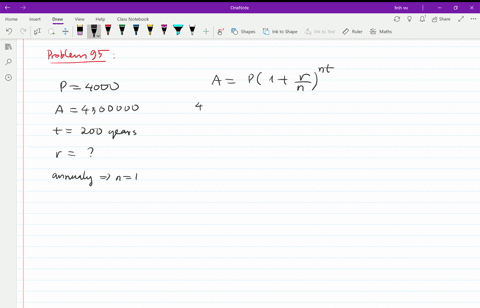 OneNote
tech vu
File Home Insert Draw View Help Class Notebook
Shapes Ink to Shape Ink to Text Ruler Maths
Problem 95 :
P = 4000
A = P ( 1 + r/n )^nt
A = 4300000
4
t = 200 years
r = ?
annualy => n = 1